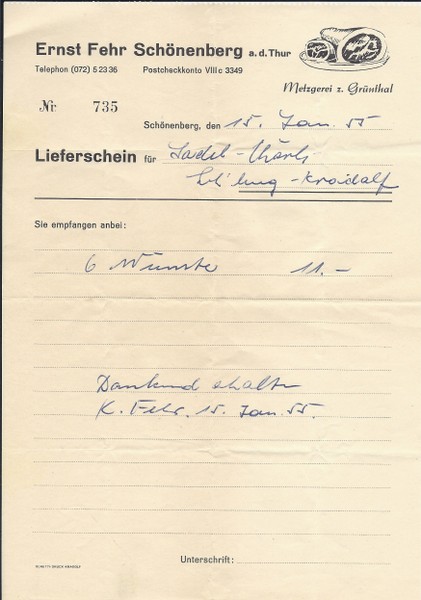 Ernst Fehr Schönenberg a. d. Thur
Telephon (072) 5 23 36 Postcheckkonto VIII c 3349
Metzgerei z. Grünthal
Nr. 735
Schönenberg, den 15. Jan. 55
Lieferschein für
Kradolf
Sie empfangen anbei:
6 Würste 11.–
Dankend erhalten
K. Fehr. 15. Jan. 55.
Unterschrift: